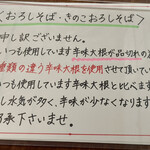 〈おろしそば・きのこおろしそば〉
申し訳ございません。
いつも使用しています辛味大根が品切れの
種類の違う辛味大根を使用させて頂いてい
いつも使用しています辛味大根と比べます
し水気が多く、辛味が少なくなります
了承下さいませ。